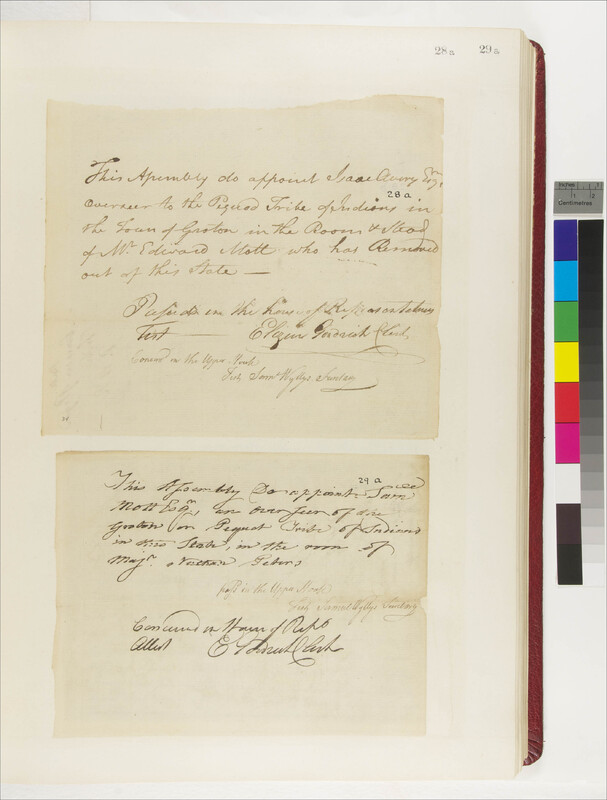 28a 29a
This Assembly do appoint Isaac Avery Esqr,
28 a.
overseer to the Pequod Tribe of Indians in
the Town of Groton in the Room & Stead
of Mr. Edward Mott who has Removed
out of this State —
Passed in the house of Representatives
Test Elizur Goodrich Clerk
Concurd in the Upper House
Test Saml Wyllys Secretary
29 a
This Assembly Do appoint Saml
Mott Esqr, an Over Seer of the
Groton Pequot Tribe of Indians
in this State, in the room of
Majr. Nathan Peters
pass'd in the Upper House
Test Samuel Wyllys Secretary
Concurred in House of Reps
Attest E Goodrich Clerk
inches 1 2
Centimetres